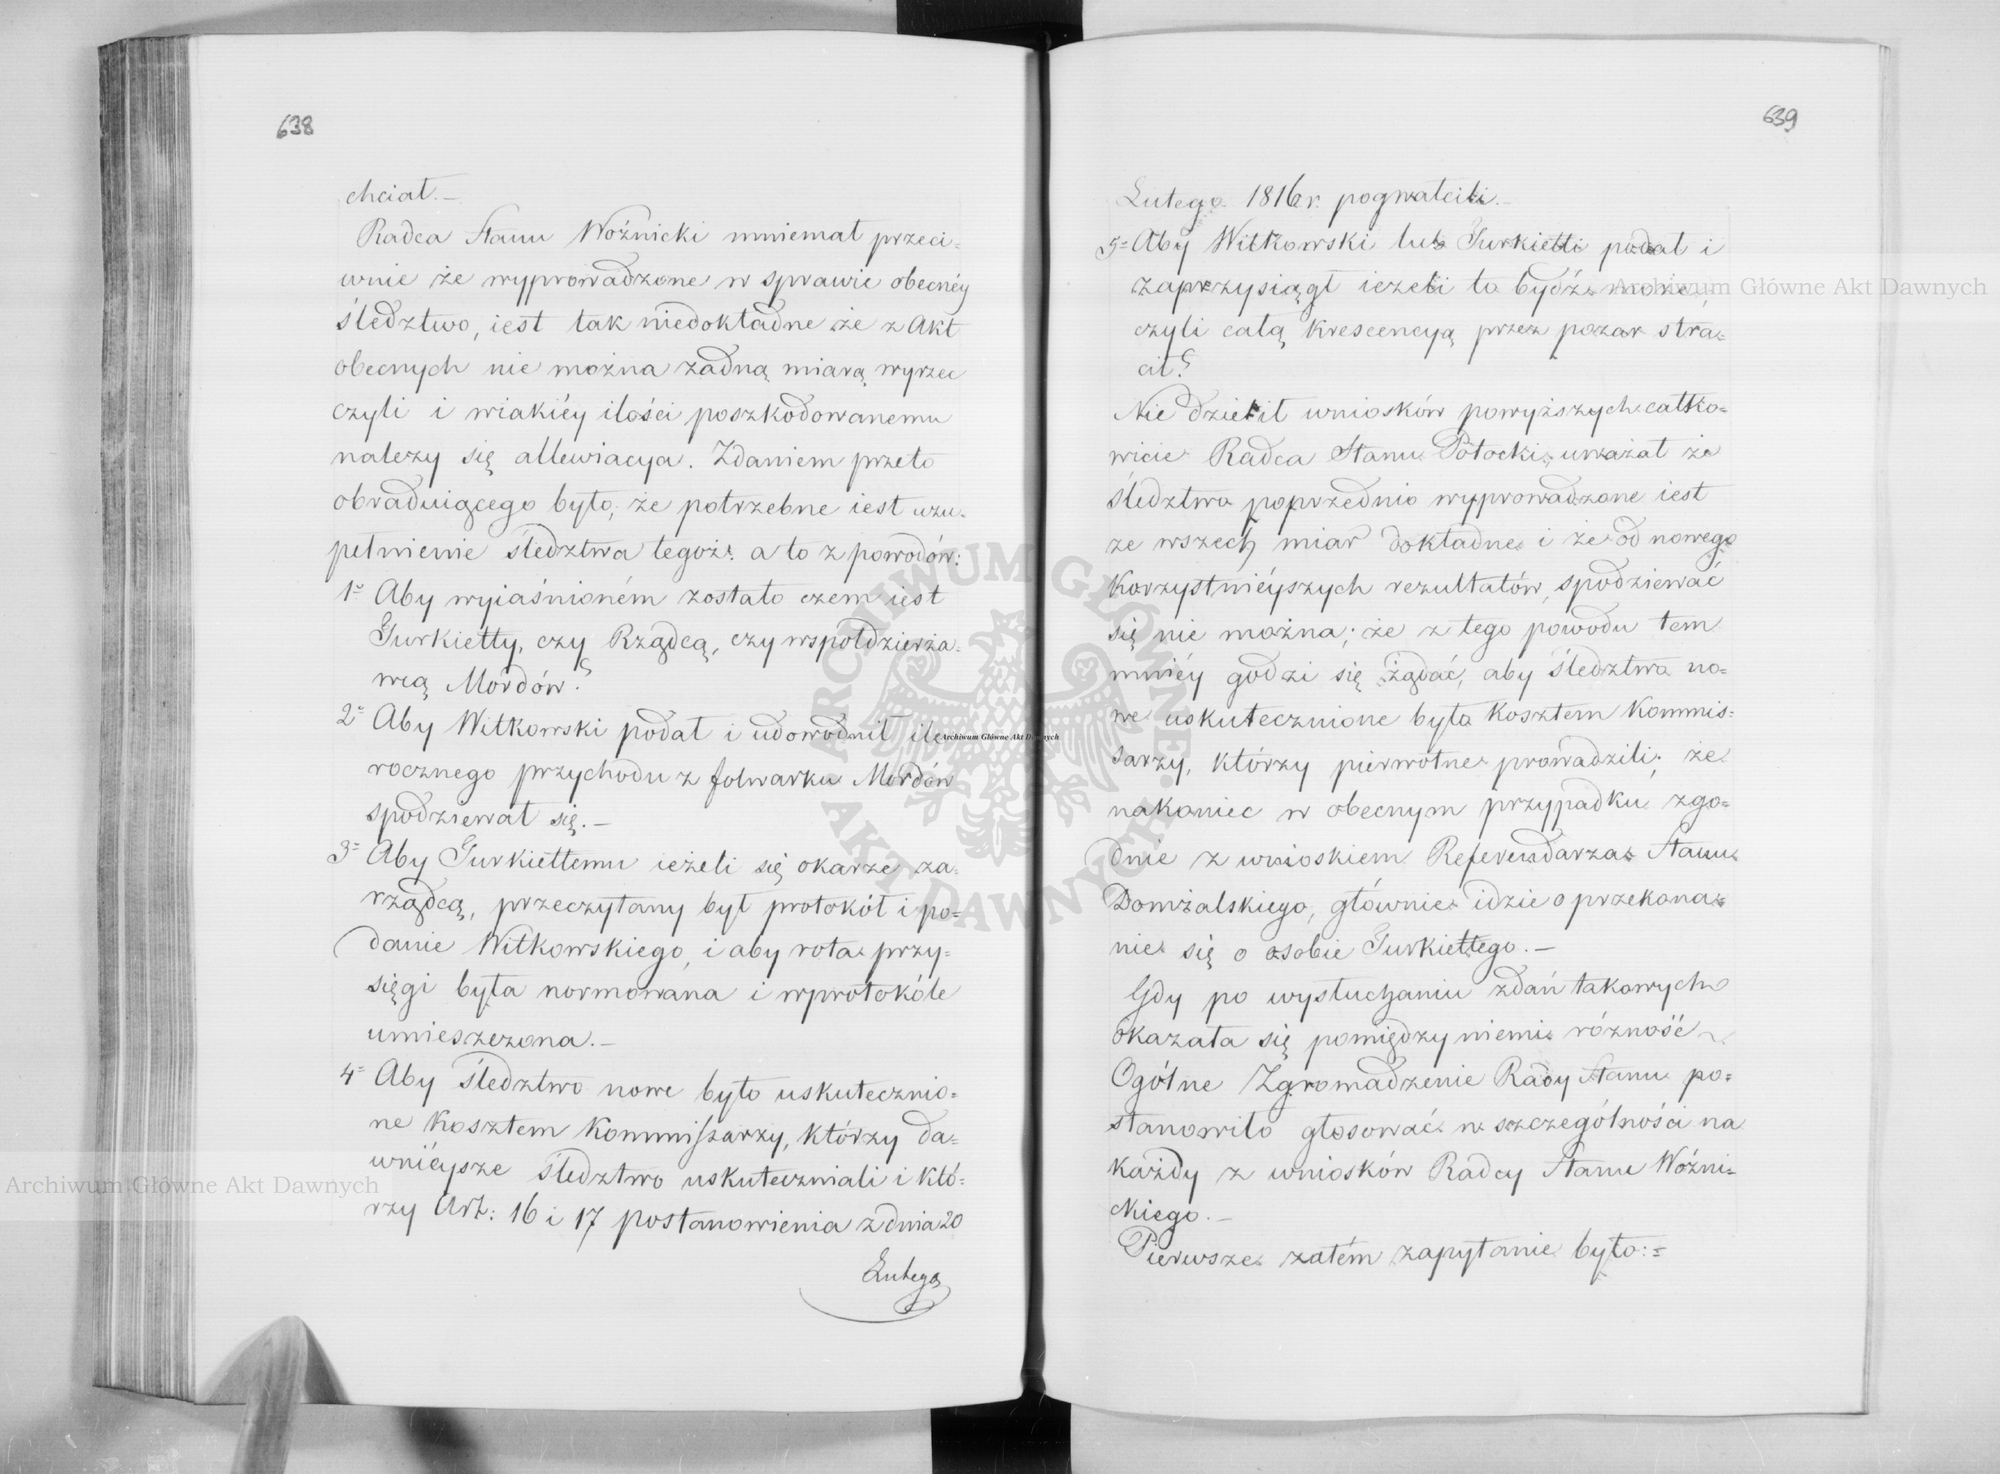 638
chciał.—
Radca Stanu Woźnicki mniemał przeci=
wnie że wyprowadzone w sprawie obecnéy
śledztwo, iest tak niedokładne że z Akt
obecnych nie można żadną miarą wyrzec
czyli i wiakiéy ilości poszkodowanemu
należy się allewiacya. Zdaniem przeto
obraduiącego było, że potrzebne iest uzu=
pełnienie śledztwa tegoż. a to z powodów:
1º Aby wyiaśnioném zostało czem iest
Gurkietty, czy Rządcą, czy współdzierża=
wcą Mordów?
2º Aby Witkowski podał i udowodnił ile
rocznego przychodu z folwarku Mordów
spodziewał się.—
3º Aby Gurkiettemu ieżeli się okarze za=
rządcą, przeczytany był protokół i po=
danie Witkowskiego, i aby rota przy=
sięgi była normowana i wprotokóle
umieszczona.—
4º Aby śledztwo nowe było uskutecznio=
ne kosztem Kommissarzy, którzy da=
wniéysze śledztwo uskuteczniali i któ=
rzy Art: 16 i 17 postanowienia z dnia 20
Lutego
639
Lutego 1816 r. pogwałcili.—
5º Aby Witkowski lub Gurkietti podał i
zaprzysiągł iezeli to bydź może,
czyli całą krescencyą przez pożar stra=
cił?
Nie dzielił wniosków powyższych całko=
wicie Radca Stanu Potocki, uważał że
śledztwo poprzednio wyprowadzone iest
ze wszech miar dokładne i że od nowego
korzystniéyszych rezultatów, spodziewać
się nie można; że z tego powodu tem
mniéy godzi się żądać, aby śledztwo no=
we uskutecznione było kosztem Kommis=
sarzy, którzy pierwotne prowadzili; że
nakoniec w obecnym przypadku zgo=
dnie z wnioskiem Referendarza Stanu
Domżalskiego, głównie idzie o przekona=
nie się o osobie Gurkiettego.—
Gdy po wysłuchaniu zdań takowych
okazała się pomiędzy niemi różność
Ogólne Zgromadzenie Rady Stanu po=
stanowiło głosować w szczególności na
każdy z wniosków Radcy Stanu Woźni=
ckiego.—
Pierwsze zatém zapytanie było:=
Archiwum Główne Akt Dawnych
Archiwum Główne Akt Dawnych
Archiwum Główne Akt Dawnych
ARCHIWUM GŁÓWNE AKT DAWNYCH